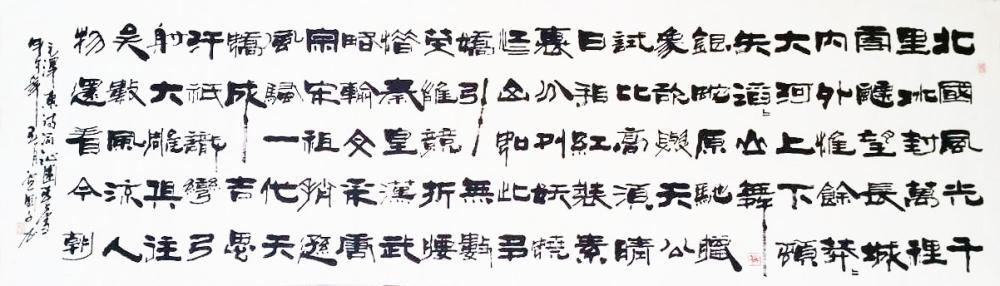 北國風光千
里冰封萬裡
雪飄望長城
内外惟餘莽〻
大河上下頓
失滔〻山舞
銀蛇原馳蠟
象欲與天公
試比高須晴
日相紅裝素
裹分外妖嬈
江山如此多
嬌引無數
英雄競折腰
惜秦皇漢武
略輸文采唐
宗宋祖稍遜
風騷一代天
驕成吉思
汗祇識彎弓
射大雕俱往
矣數風流人
物還看今朝
毛澤東詩詞沁園春雪
午年